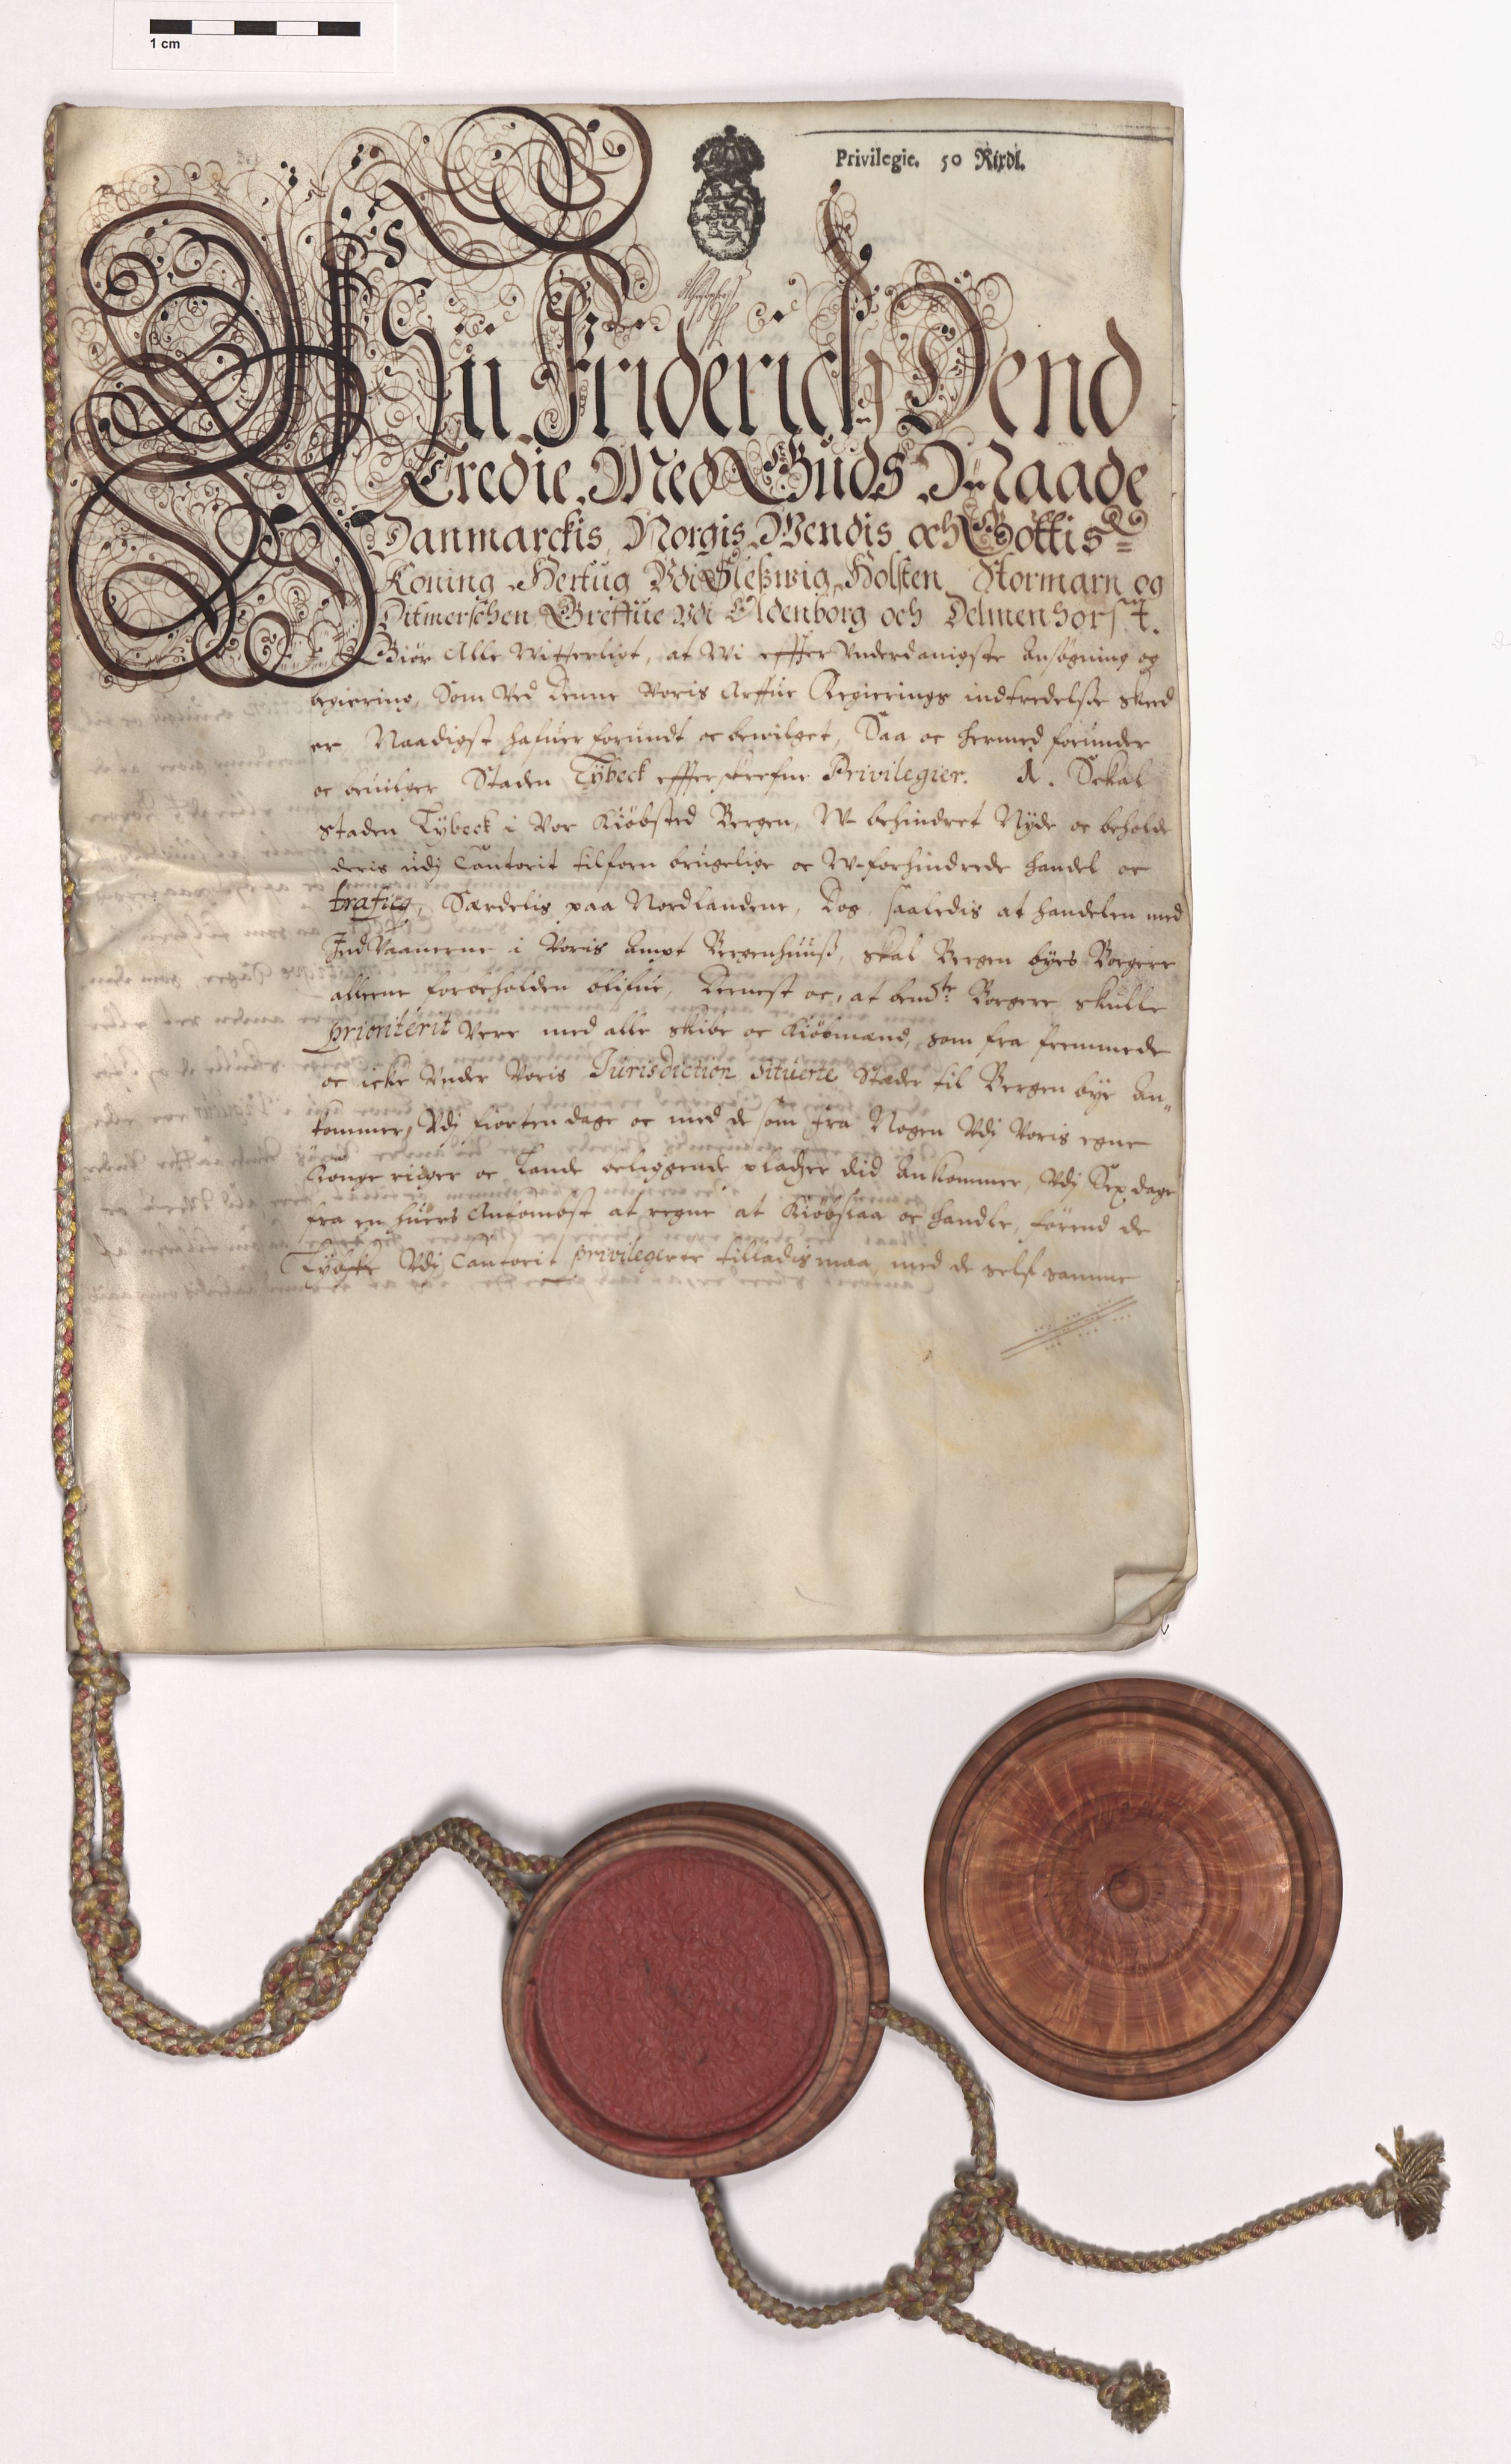 1 cm
Privilegie. 50 Rixdl.
Wii Friderich Dend
Tredie Med Guds Naade
Danmarckis, Norgis, Wendis och Gottis
Koning Hertug Vdi Sleßwig Holsten Stormarn og
Ditmerschen Greffue Vdi Oldenborg och Delmenhorst.
Giør Alle Witterligt, at Wi effter Vnderdanigste Ansøgning og
begiering, Som Ved denne Voris Arffue Regierings indtredelse skeed
er Naadigst hafuer forundt oc bewilget, Saa oc hermed forunder
oc beuilger Staden Lybeck effterskrefne Privilegier. 1. Sckal
Staden Lybeck i Vor Kiøbsted Bergen, W-behindret Nyde oc beholde
deris udj Cantorit tilforn brugelige oc W-forhindrede handel oc
traficq, Særdelis paa Nordlandene, Dog saaledis at handelen med
IndVaanerne i Voris Ampt Bergenhuuß, skal Bergen byes Borgere
alleene forbeholden blifue, Dernest oc, at bemte Borgere skulle
prioriterit Vere med alle skibe oc Kiøbmænd, som fra fremmede
oc icke Vnder Voris Jurisdiction Situerte Stæder til Bergen bye An„
kommer, Vdj fiorten dage oc med de som fra Nogen Vdj Voris egne
Konge riger oc Lande beliggende pladzer did Ankommer, Vdj Sex dage
fra en huers Ankomst at regne at Kiøbslaa oc handle, førend de
Lybske Vdj Cantorit privilegerte tilladis maa, med de self samme